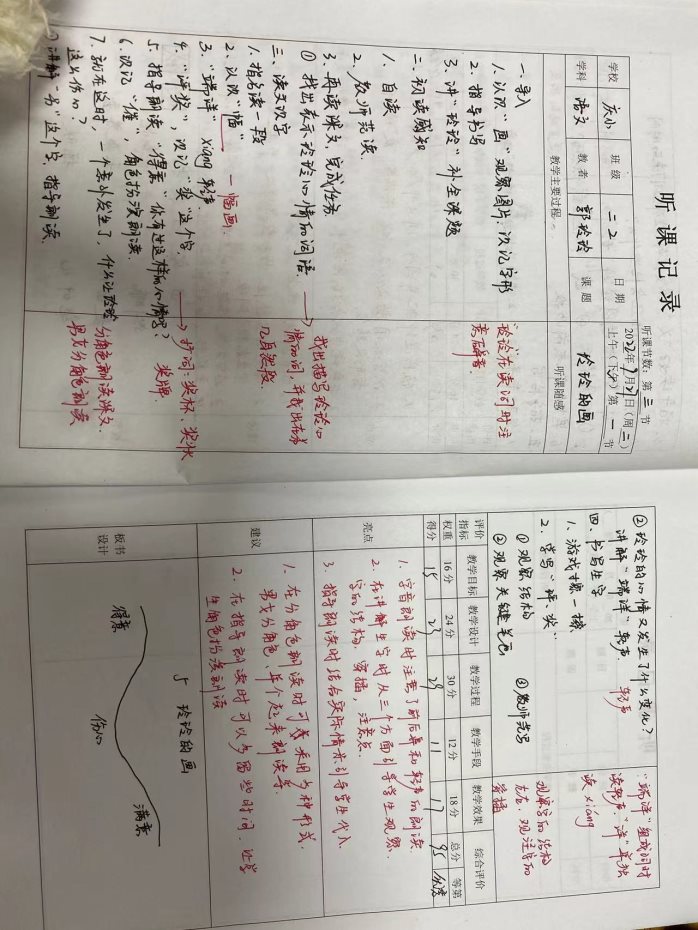 听课记录
听课节数：第三节
学校 庆小 班级 二2 日期 2022年9月21日（周三）上午（下午）第一节
学科 语文 教者 郭玲玲 课题 玲玲的画
教学主要过程
听课随感
一、导入
1. 认识"画"观察图片，识记字形
2. 指导书写
3. 讲"玲玲"补全课题
"玲玲"在读词时注意后鼻音。
二、初读感知
1. 自读
2. 教师范读
3. 再读课文，完成任务
① 找出表示玲玲心情的词语。
找出描写玲玲心情的词，并找出在第几自然段。
三、读文识字
1. 指名读一段
2. 认识"幅" 一幅画
3. "端详" xiang 轻声
4. "评奖"，识记"奖"这个字。
扩词：奖杯、奖状 奖牌
5. 指导朗读"得意"你有过这样的心情吗？
6. 识记"催"，角色扮演朗读
7. 就在这时，一个意外发生了，什么让玲玲这么伤心？
分角色朗读课文，男女分角色朗读
① 讲解"另"这个字，指导朗读
② 玲玲的心情又发生了什么变化？
讲解"端详"轻声 轻声
"端详"组成词时读轻声，"详"单独读xiáng
四、书写生字
1. 游戏摸一摸
2. 学写"评、奖"
① 观察结构
② 观察关键笔画
③ 教师范写
观察字的结构
左右，观注字的穿插
评价指标 教学目标 教学设计 教学过程 教学手段 教学效果 综合评价
权重 16分 24分 30分 12分 18分 总分 等第
得分 15 23 29 11 17 95 优秀
亮点
1. 字音朗读时注意了前后鼻和轻声的朗读。
2. 在讲解生字时从三个方面引导学生观察，字的结构、穿插、注意点。
3. 指导朗读时结合实际情景引导学生代入
建议
1. 在分角色朗读时可以采用多种形式，男女分角色、单个起来朗读等。
2. 在指导朗读时可以多留些时间，让学生角色扮演朗读
板书设计
5 玲玲的画
得意
伤心
满意